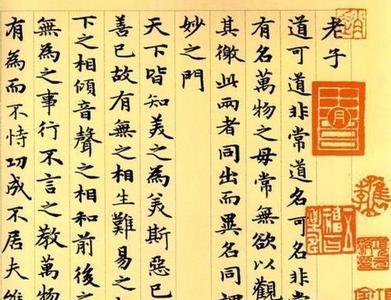 老子
道可道非常道名可名非常
有名萬物之母常無欲以觀
其徼此兩者同出而異名同謂
妙之門
天下皆知美之為美斯惡已
善已故有無之相生難易之
下之相傾音聲之相和前後之
無為之事行不言之教萬物
有為而不恃功成不居夫